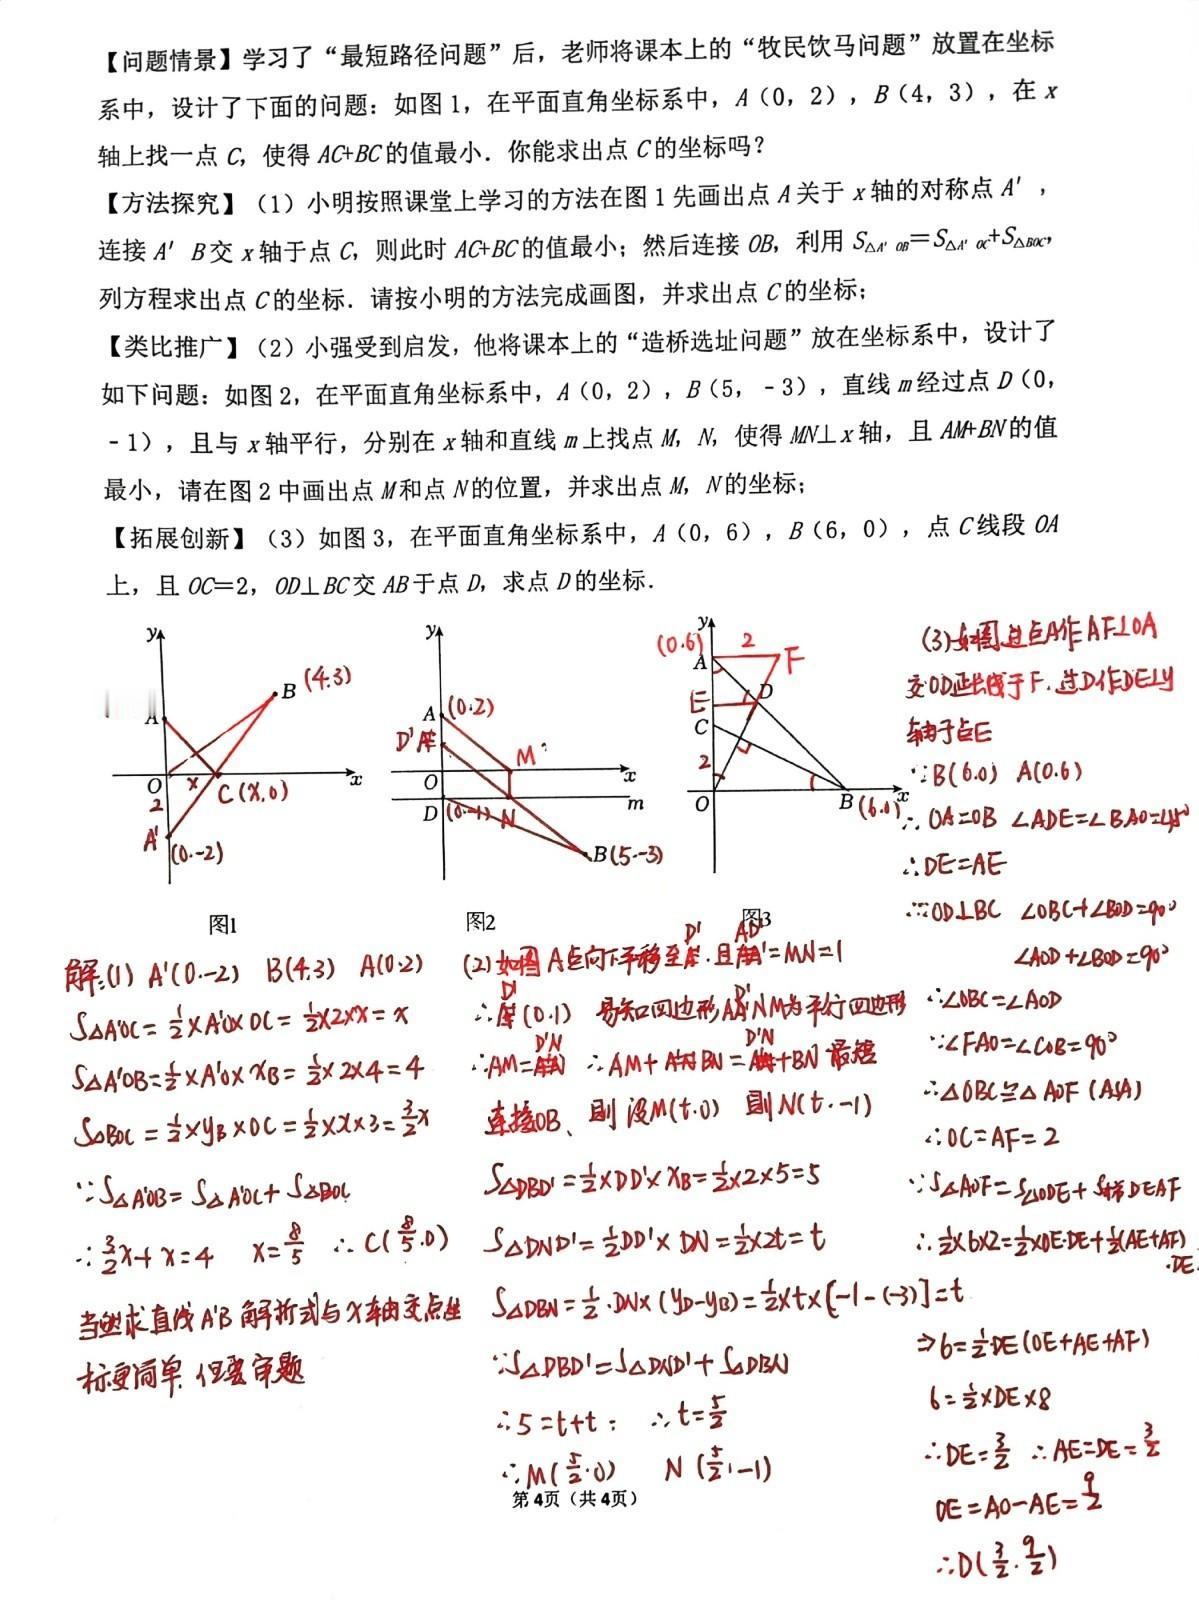 【问题情景】学习了“最短路径问题”后，老师将课本上的“牧民饮马问题”放置在坐标
系中，设计了下面的问题：如图1，在平面直角坐标系中，A（0，2），B（4，3），在x
轴上找一点C，使得AC+BC的值最小．你能求出点C的坐标吗？
【方法探究】（1）小明按照课堂上学习的方法在图1先画出点A关于x轴的对称点A′，
连接A′B交x轴于点C，则此时AC+BC的值最小；然后连接OB，利用S△A′OB＝S△A′OC+S△BOC，
列方程求出点C的坐标．请按小明的方法完成画图，并求出点C的坐标；
【类比推广】（2）小强受到启发，他将课本上的“造桥选址问题”放在坐标系中，设计了
如下问题：如图2，在平面直角坐标系中，A（0，2），B（5，﹣3），直线m经过点D（0，
﹣1），且与x轴平行，分别在x轴和直线m上找点M，N，使得MN⊥x轴，且AM+BN的值
最小，请在图2中画出点M和点N的位置，并求出点M，N的坐标；
【拓展创新】（3）如图3，在平面直角坐标系中，A（0，6），B（6，0），点C线段OA
上，且OC＝2，OD⊥BC交AB于点D，求点D的坐标．
y
B (4.3)
A
O x C (x,0) x
2
A' (0.-2)
图1
y
A (0.2)
D'
M
O x
D (0.-1) N m
B (5.-3)
图2
y
(0.6) A 2 F
E D
C
2
O B (6.0) x
图3
解:(1) A'(0.-2) B(4.3) A(0.2)
S△A'OC = 1/2×A'O×OC = 1/2×2×x = x
S△A'OB = 1/2×A'O×xB = 1/2×2×4 = 4
S△BOC = 1/2×yB×OC = 1/2×x×3 = 3/2x
∵S△A'OB = S△A'OC + S△BOC
∴3/2x + x = 4 x = 8/5 ∴C(8/5.0)
当然求直线A'B解析式与x轴交点坐
标更简单.但要审题
(2)如图A点向下平移至D'.且AD'=MN=1
∴D'(0.1) 易知四边形AD'NM为平行四边形
∴AM=D'N ∴AM+BN=D'N+BN最短
连接OB、则设M(t.0) 则N(t.-1)
S△DBD' = 1/2×DD'×xB = 1/2×2×5 = 5
S△DND' = 1/2DD'×DN = 1/2×2t = t
S△DBN = 1/2.DN×(yD-yB) = 1/2×t×[-1-(-3)] = t
∵S△DBD' = S△DND' + S△DBN
∴5=t+t; ∴t=5/2
∴M(5/2.0) N(5/2.-1)
(3)如图过点A作AF⊥OA
交OD延长线于F.过D作DE⊥y
轴于点E
∵B(6.0) A(0.6)
∴OA=OB ∠ADE=∠BAO=45°
∴DE=AE
∵OD⊥BC ∠OBC+∠BOD=90°
∠AOD+∠BOD=90°
∴∠OBC=∠AOD
∵∠FAO=∠COB=90°
∴△OBC≌△AOF (ASA)
∴OC=AF=2
∵S△AOF=S△ODE+S梯DEAF
∴1/2×6×2=1/2×OE·DE+1/2(AE+AF)
·DE.
⇒6=1/2DE(OE+AE+AF)
6=1/2×DE×8
∴DE=3/2 ∴AE=DE=3/2
OE=AO-AE=9/2
∴D(3/2.9/2)
第4页（共4页）